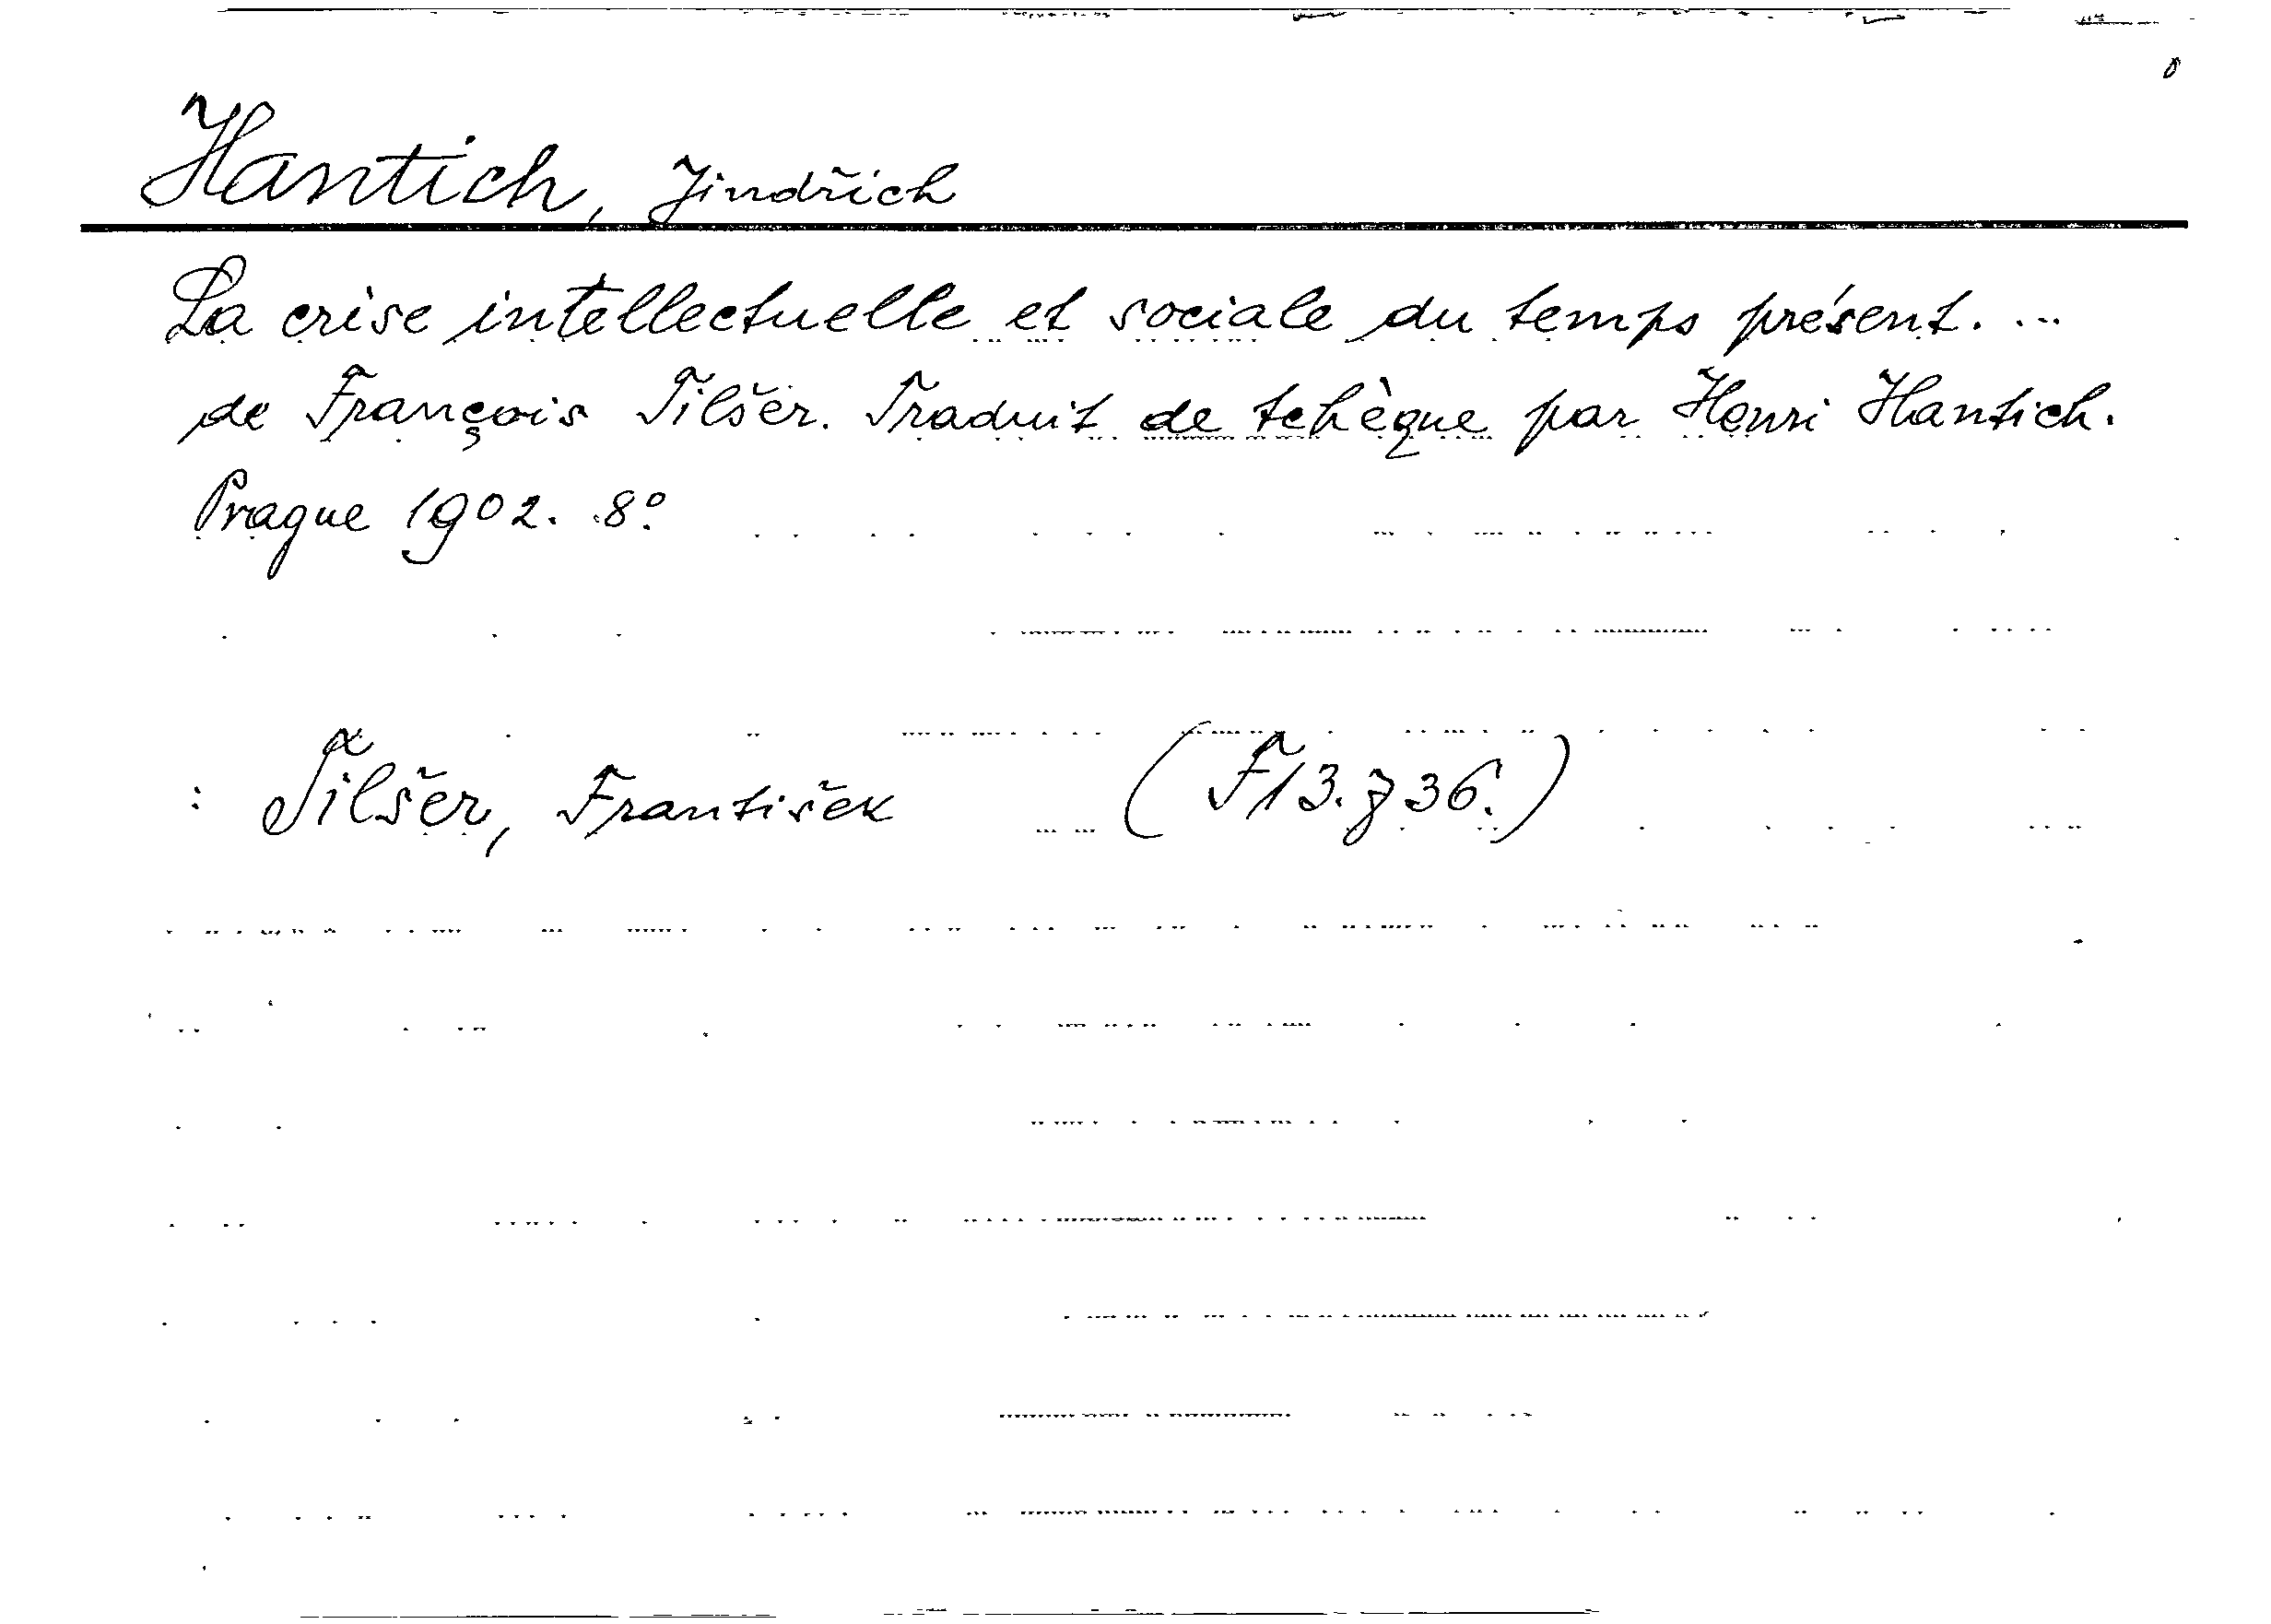 Hantich, Jindřich
La crise intellectuelle et sociale du temps présent. ...
de François Tilšer. Traduit de tchèque par Henri Hantich.
Prague 1902. 8°.
: Tilšer, František (F13.z36.)